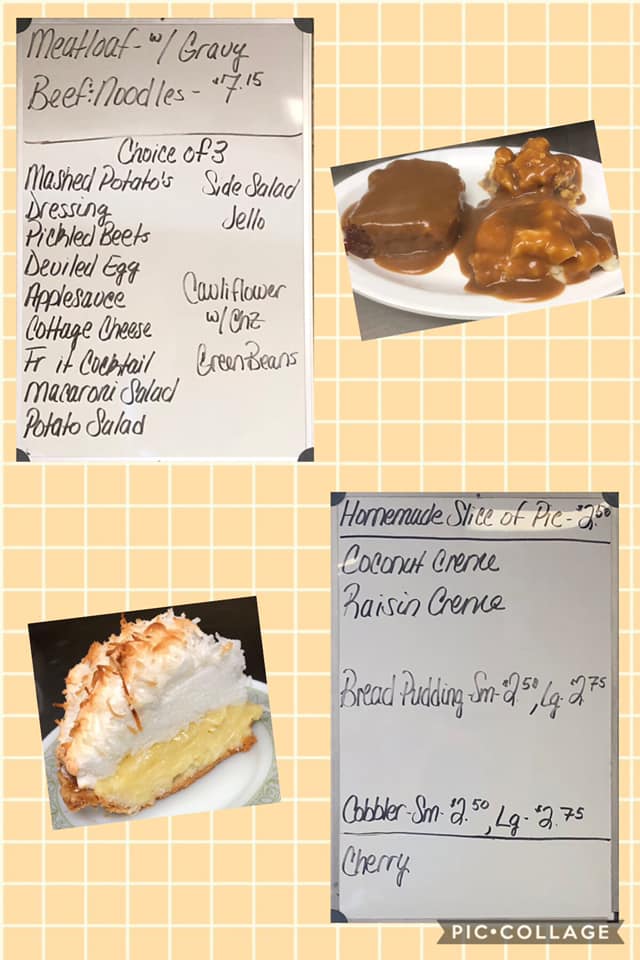 Meatloaf - w/ Gravy
Beef & Noodles - $7.15
Choice of 3
Mashed Potato's
Dressing
Pickled Beets
Deviled Egg
Applesauce
Cottage Cheese
Fr it Cocktail
Macaroni Salad
Potato Salad
Side Salad
Jello
Cauliflower
w/ Chz
Green Beans
Homemade Slice of Pie - $2.50
Coconut Creme
Raisin Creme
Bread Pudding - Sm - $2.50, Lg - $2.75
Cobbler - Sm - $2.50, Lg - $2.75
Cherry
PIC•COLLAGE